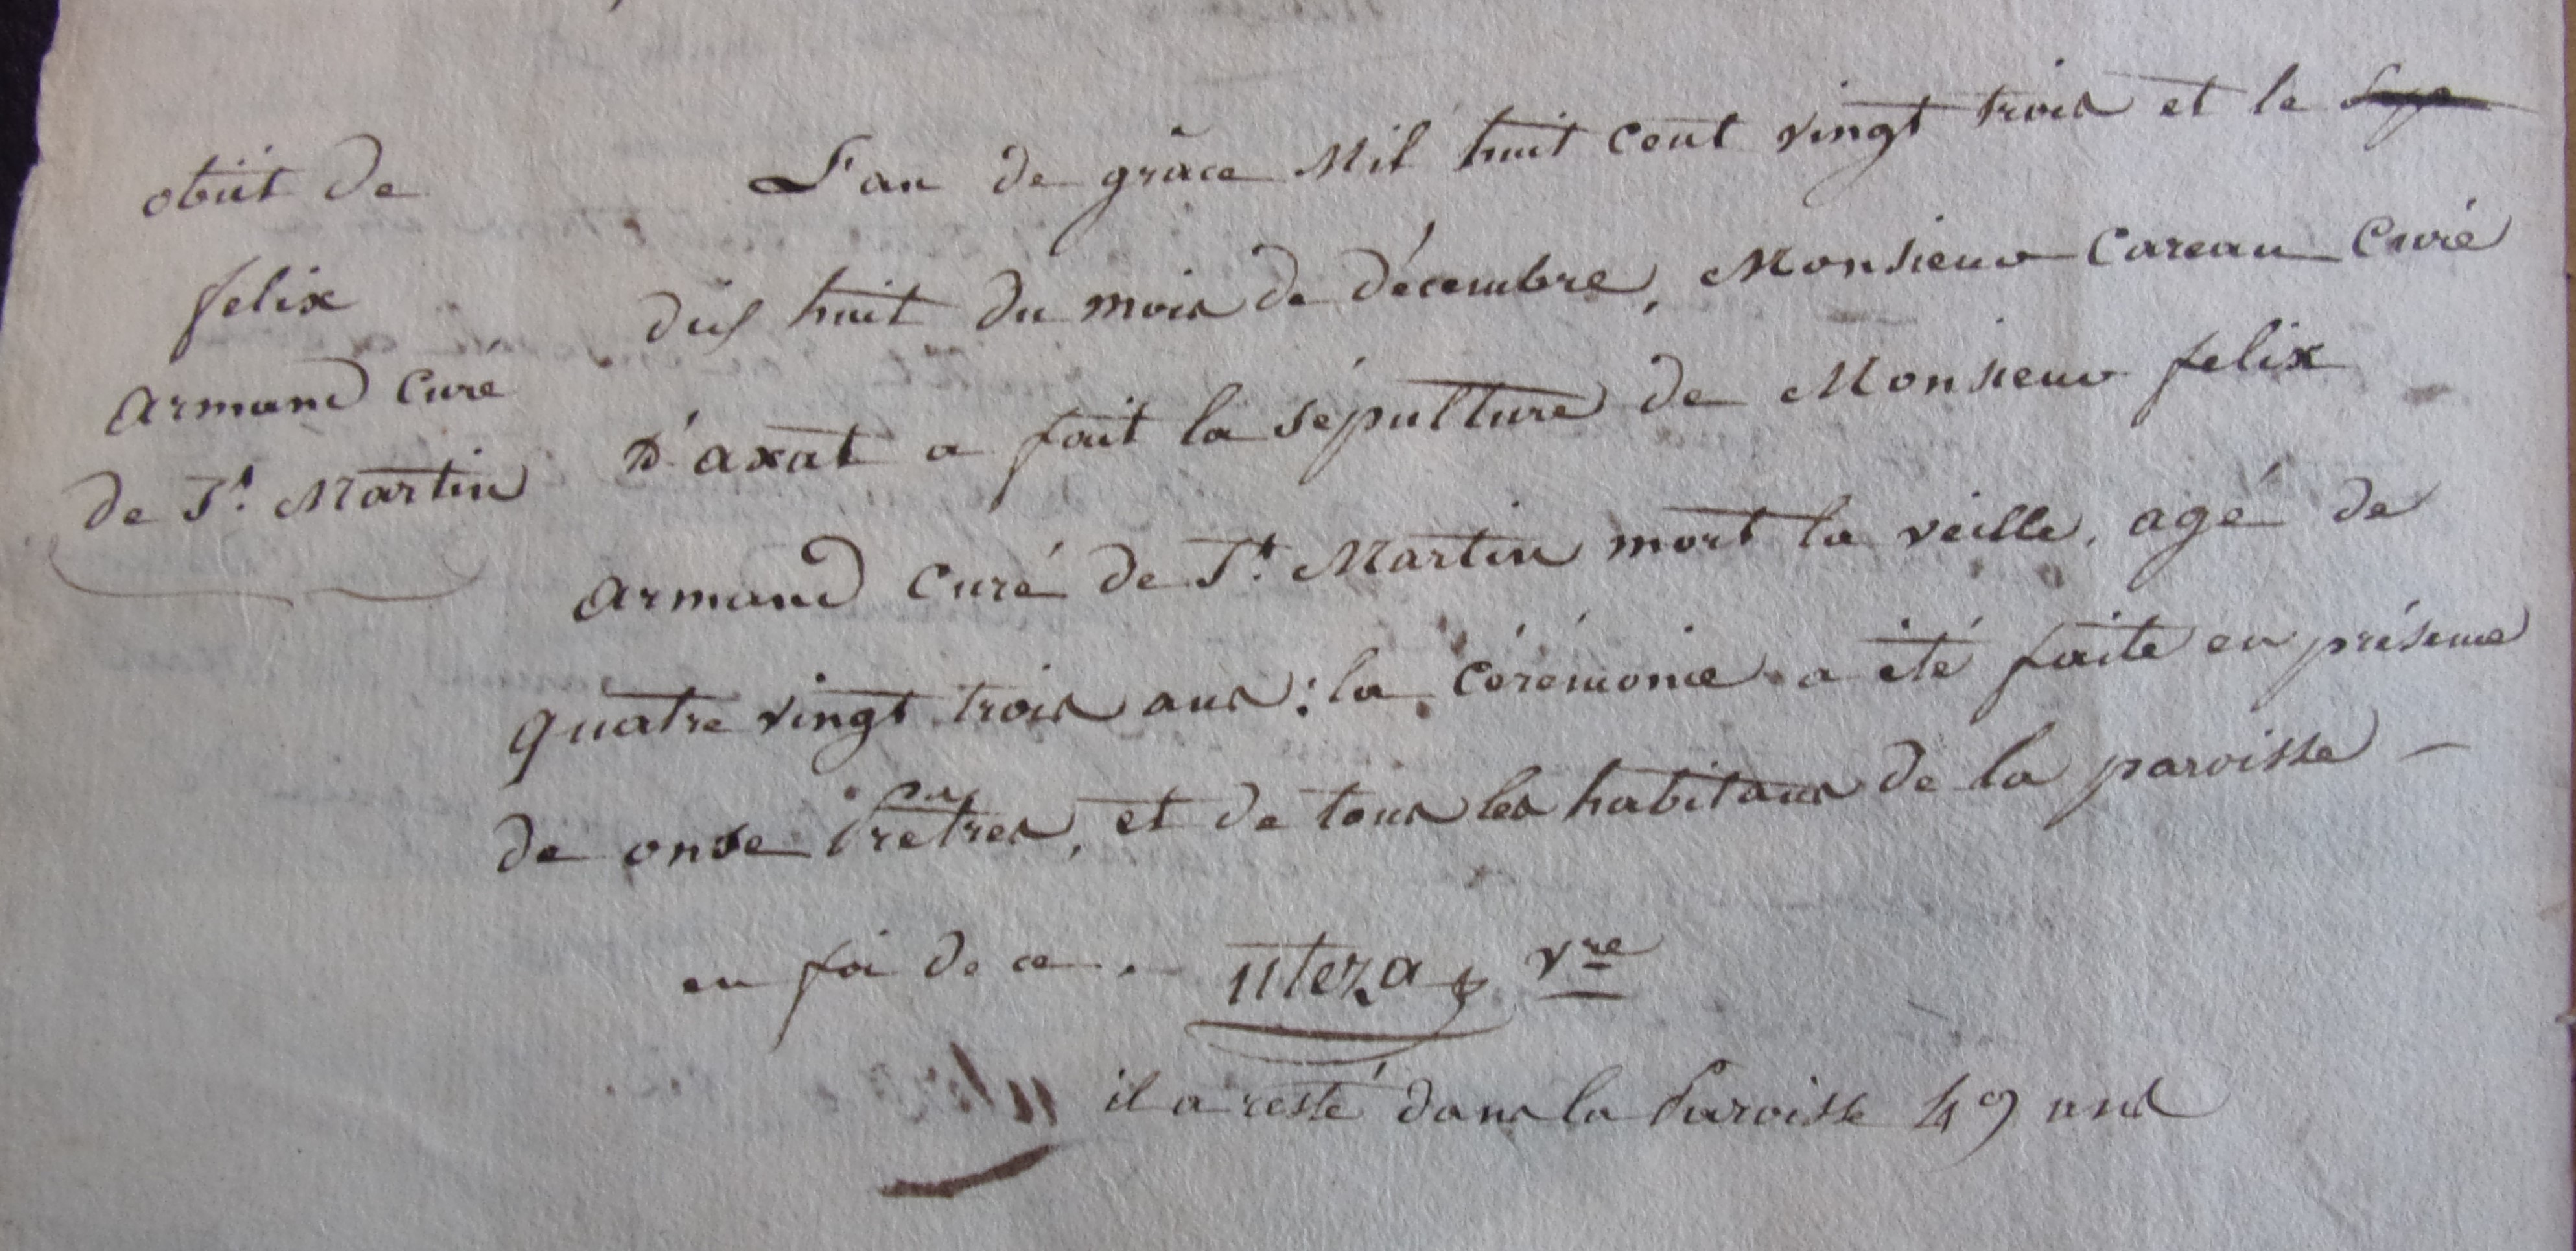 obiit de
felix
armand curé
de St. Martin
L'an de grâce Mil huit cent vingt trois et le
dix huit du mois de décembre, Monsieur Careau Curé
D'axat a fait la sépulture de Monsieur felix
armand curé de St. Martin mort la veille, agé de
quatre vingt trois ans: la cérémonie a été faite en présence
de onze Prêtres, et de tous les habitans de la paroisse –
en foi de ce. uteza vre
il a resté dans la Paroisse 49 ans